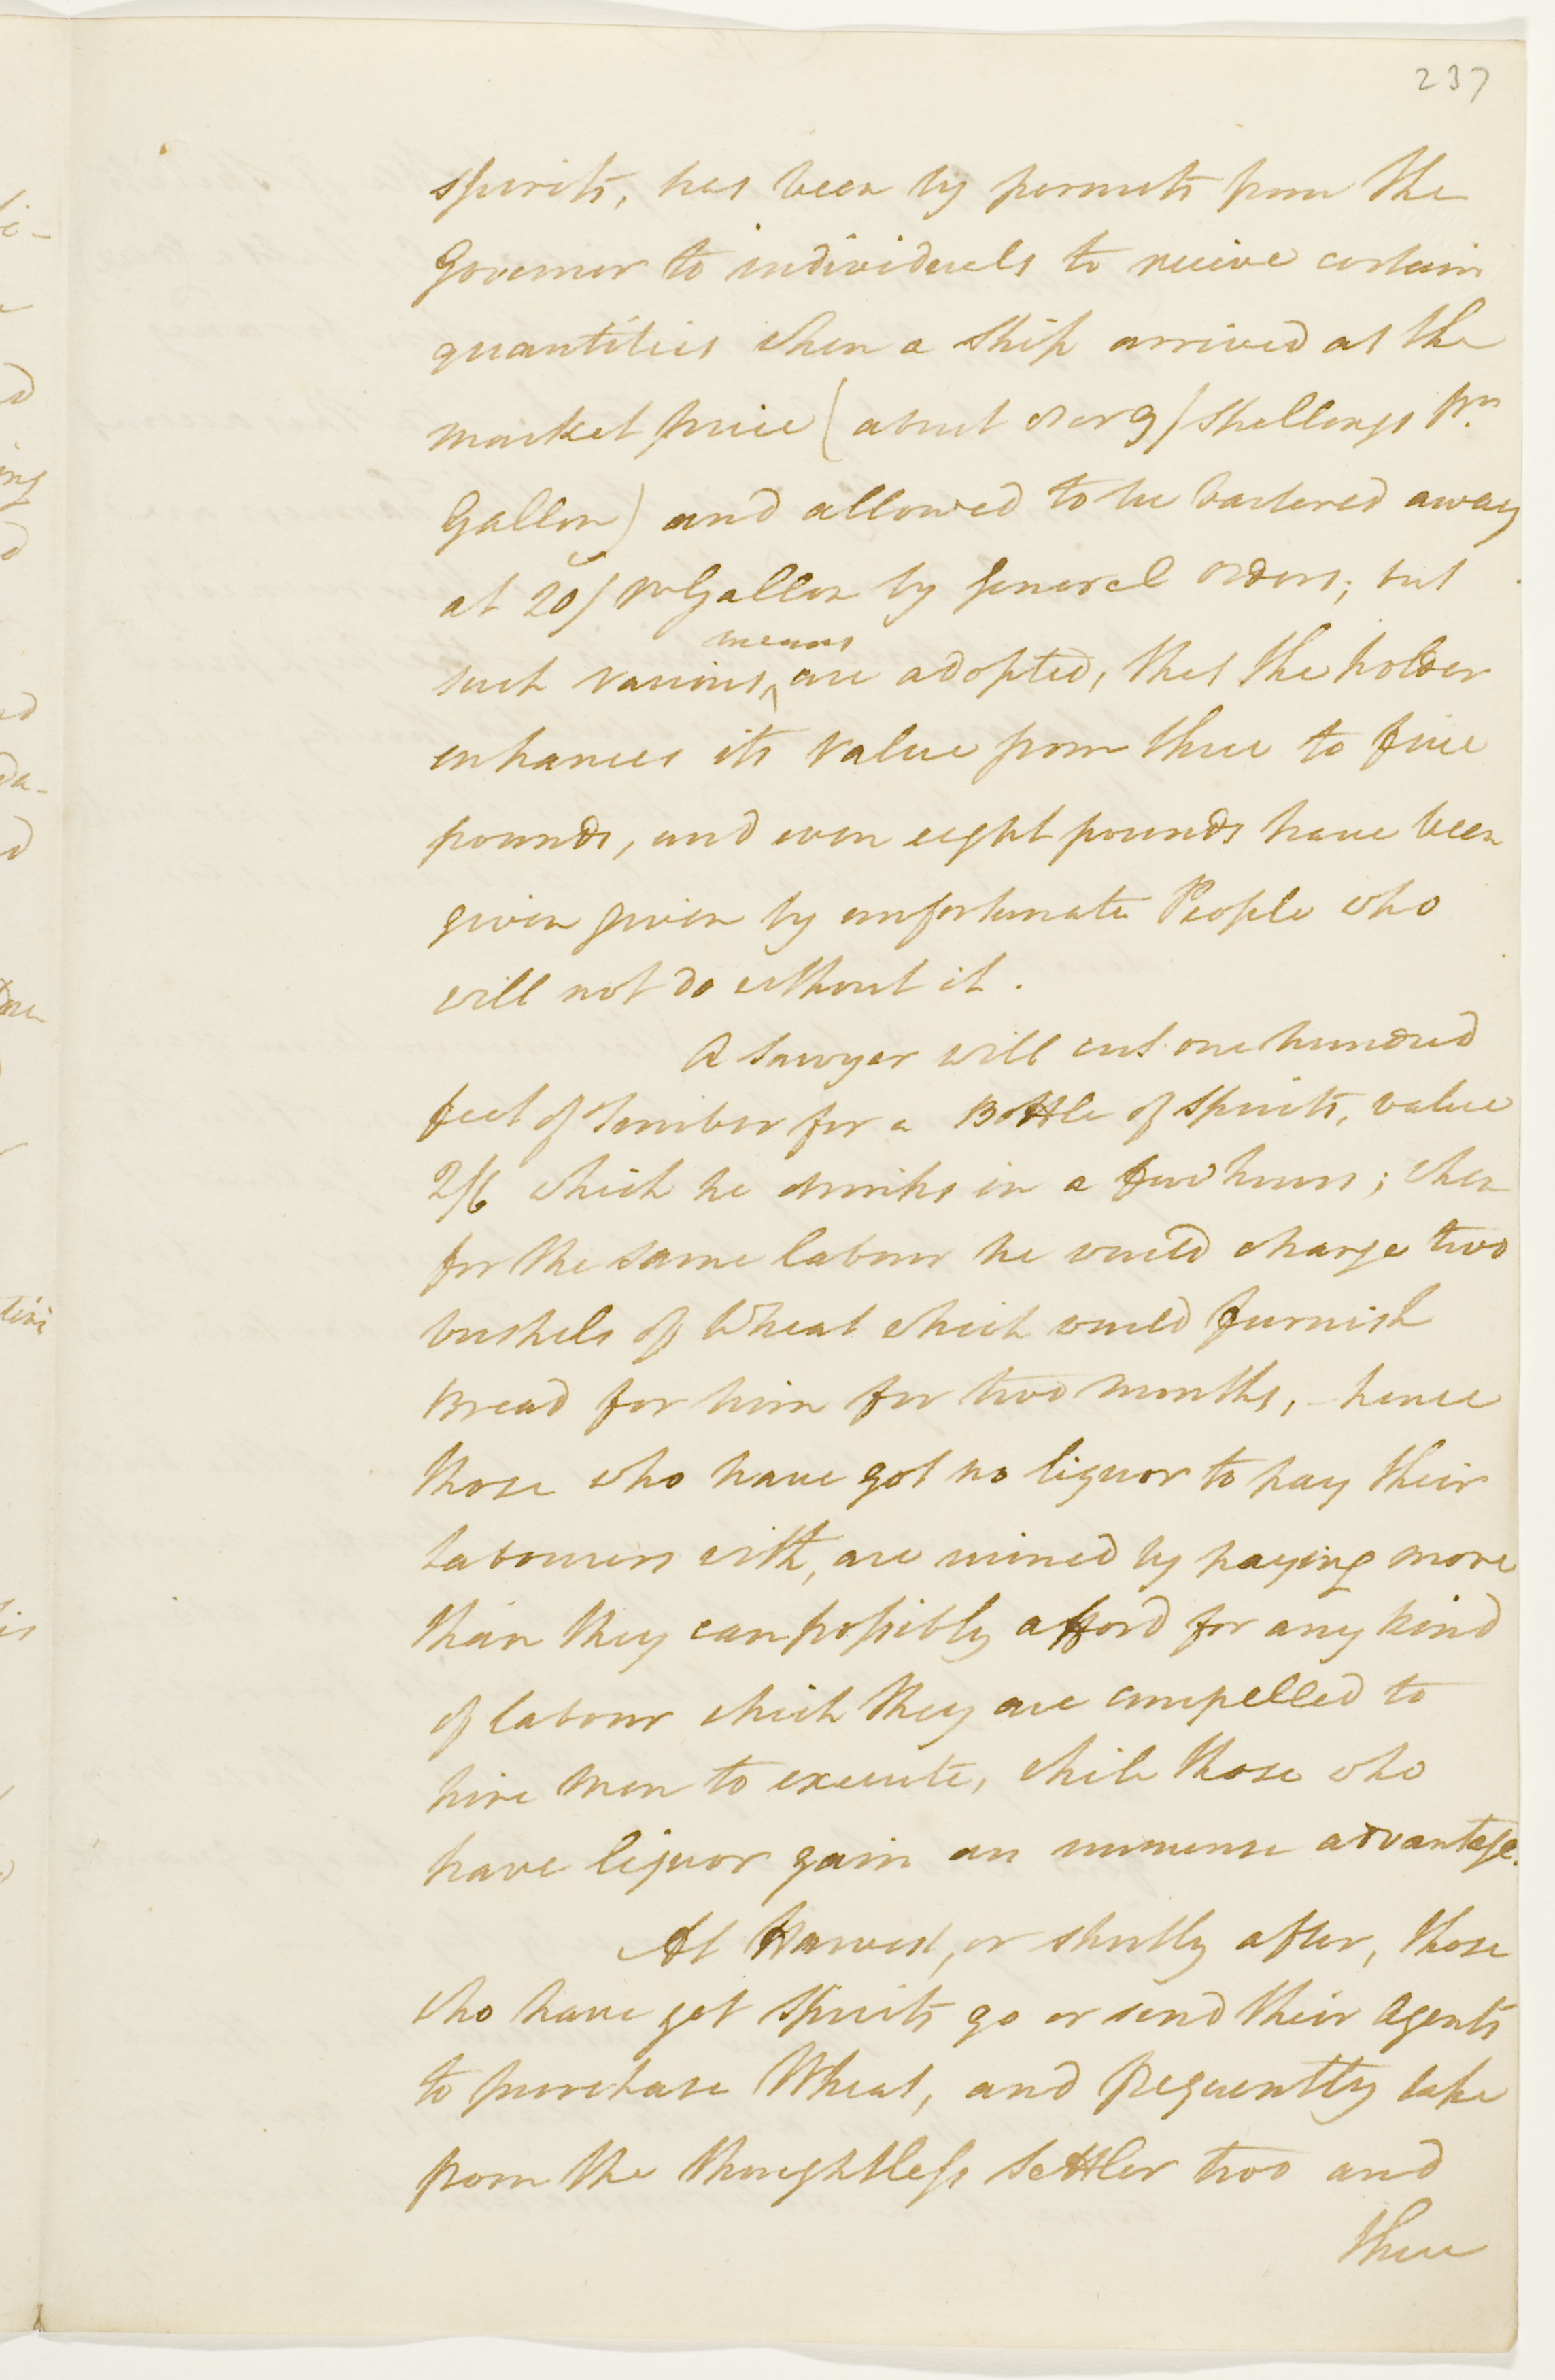 237
spirits, has been by permits from the
Governor to individuals to receive certain
quantities when a ship arrived at the
market price (about 8 or 9/ shillings pr.
Gallon) and allowed to be bartered away
at 20/ pr Gallon by General orders; but
means
such various, are adopted, that the holder
enhances its value from three to five
pounds, and even eight pounds have been
given given by unfortunate People who
will not do without it.
A Sawyer will cut one hundred
feet of Timber for a Bottle of Spirits, value
2/6 which he drinks in a few hours; when
for the same labour he would charge two
bushels of Wheat which would furnish
Bread for him for two months, - hence
those who have got no liquor to pay their
labourers with, are ruined by paying more
than they can possibly afford for any kind
of labour which they are compelled to
hire men to execute, while those who
have liquor gain an immense advantage.
At Harvest, or shortly after, those
who have got Spirits go or send their Agents
to purchase Wheat, and frequently take
from the thoughtless Settler two and
three